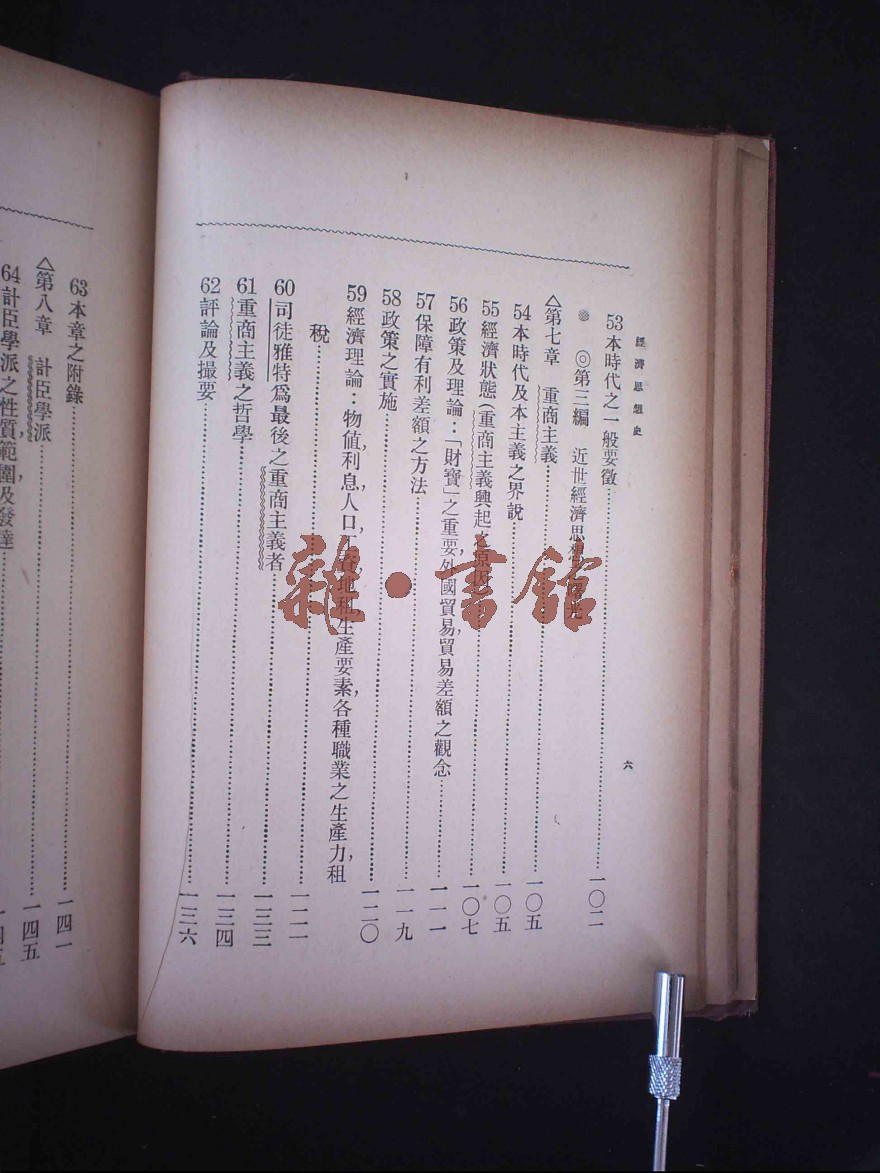 經濟思想史
六
53本時代之一般要徵……一〇二
◎第三編　近世經濟思想之曙光
△第七章　重商主義……一〇五
54本時代及本主義之界說……一〇五
55經濟狀態（重商主義興起之原因）……一〇七
56政策及理論：「財寶」之重要，外國貿易，貿易差額之觀念……一一一
57保障有利差額之方法……一一九
58政策之實施……一二〇
59經濟理論：物值，利息，人口，工資，地租，生產要素，各種職業之生產力，租
稅……一二一
60司徒雅特爲最後之重商主義者……一三三
61重商主義之哲學……一三四
62評論及撮要……一三六
63本章之附錄……一四一
△第八章　計臣學派……一四五
64計臣學派之性質，範圍，及發達
雜·書館